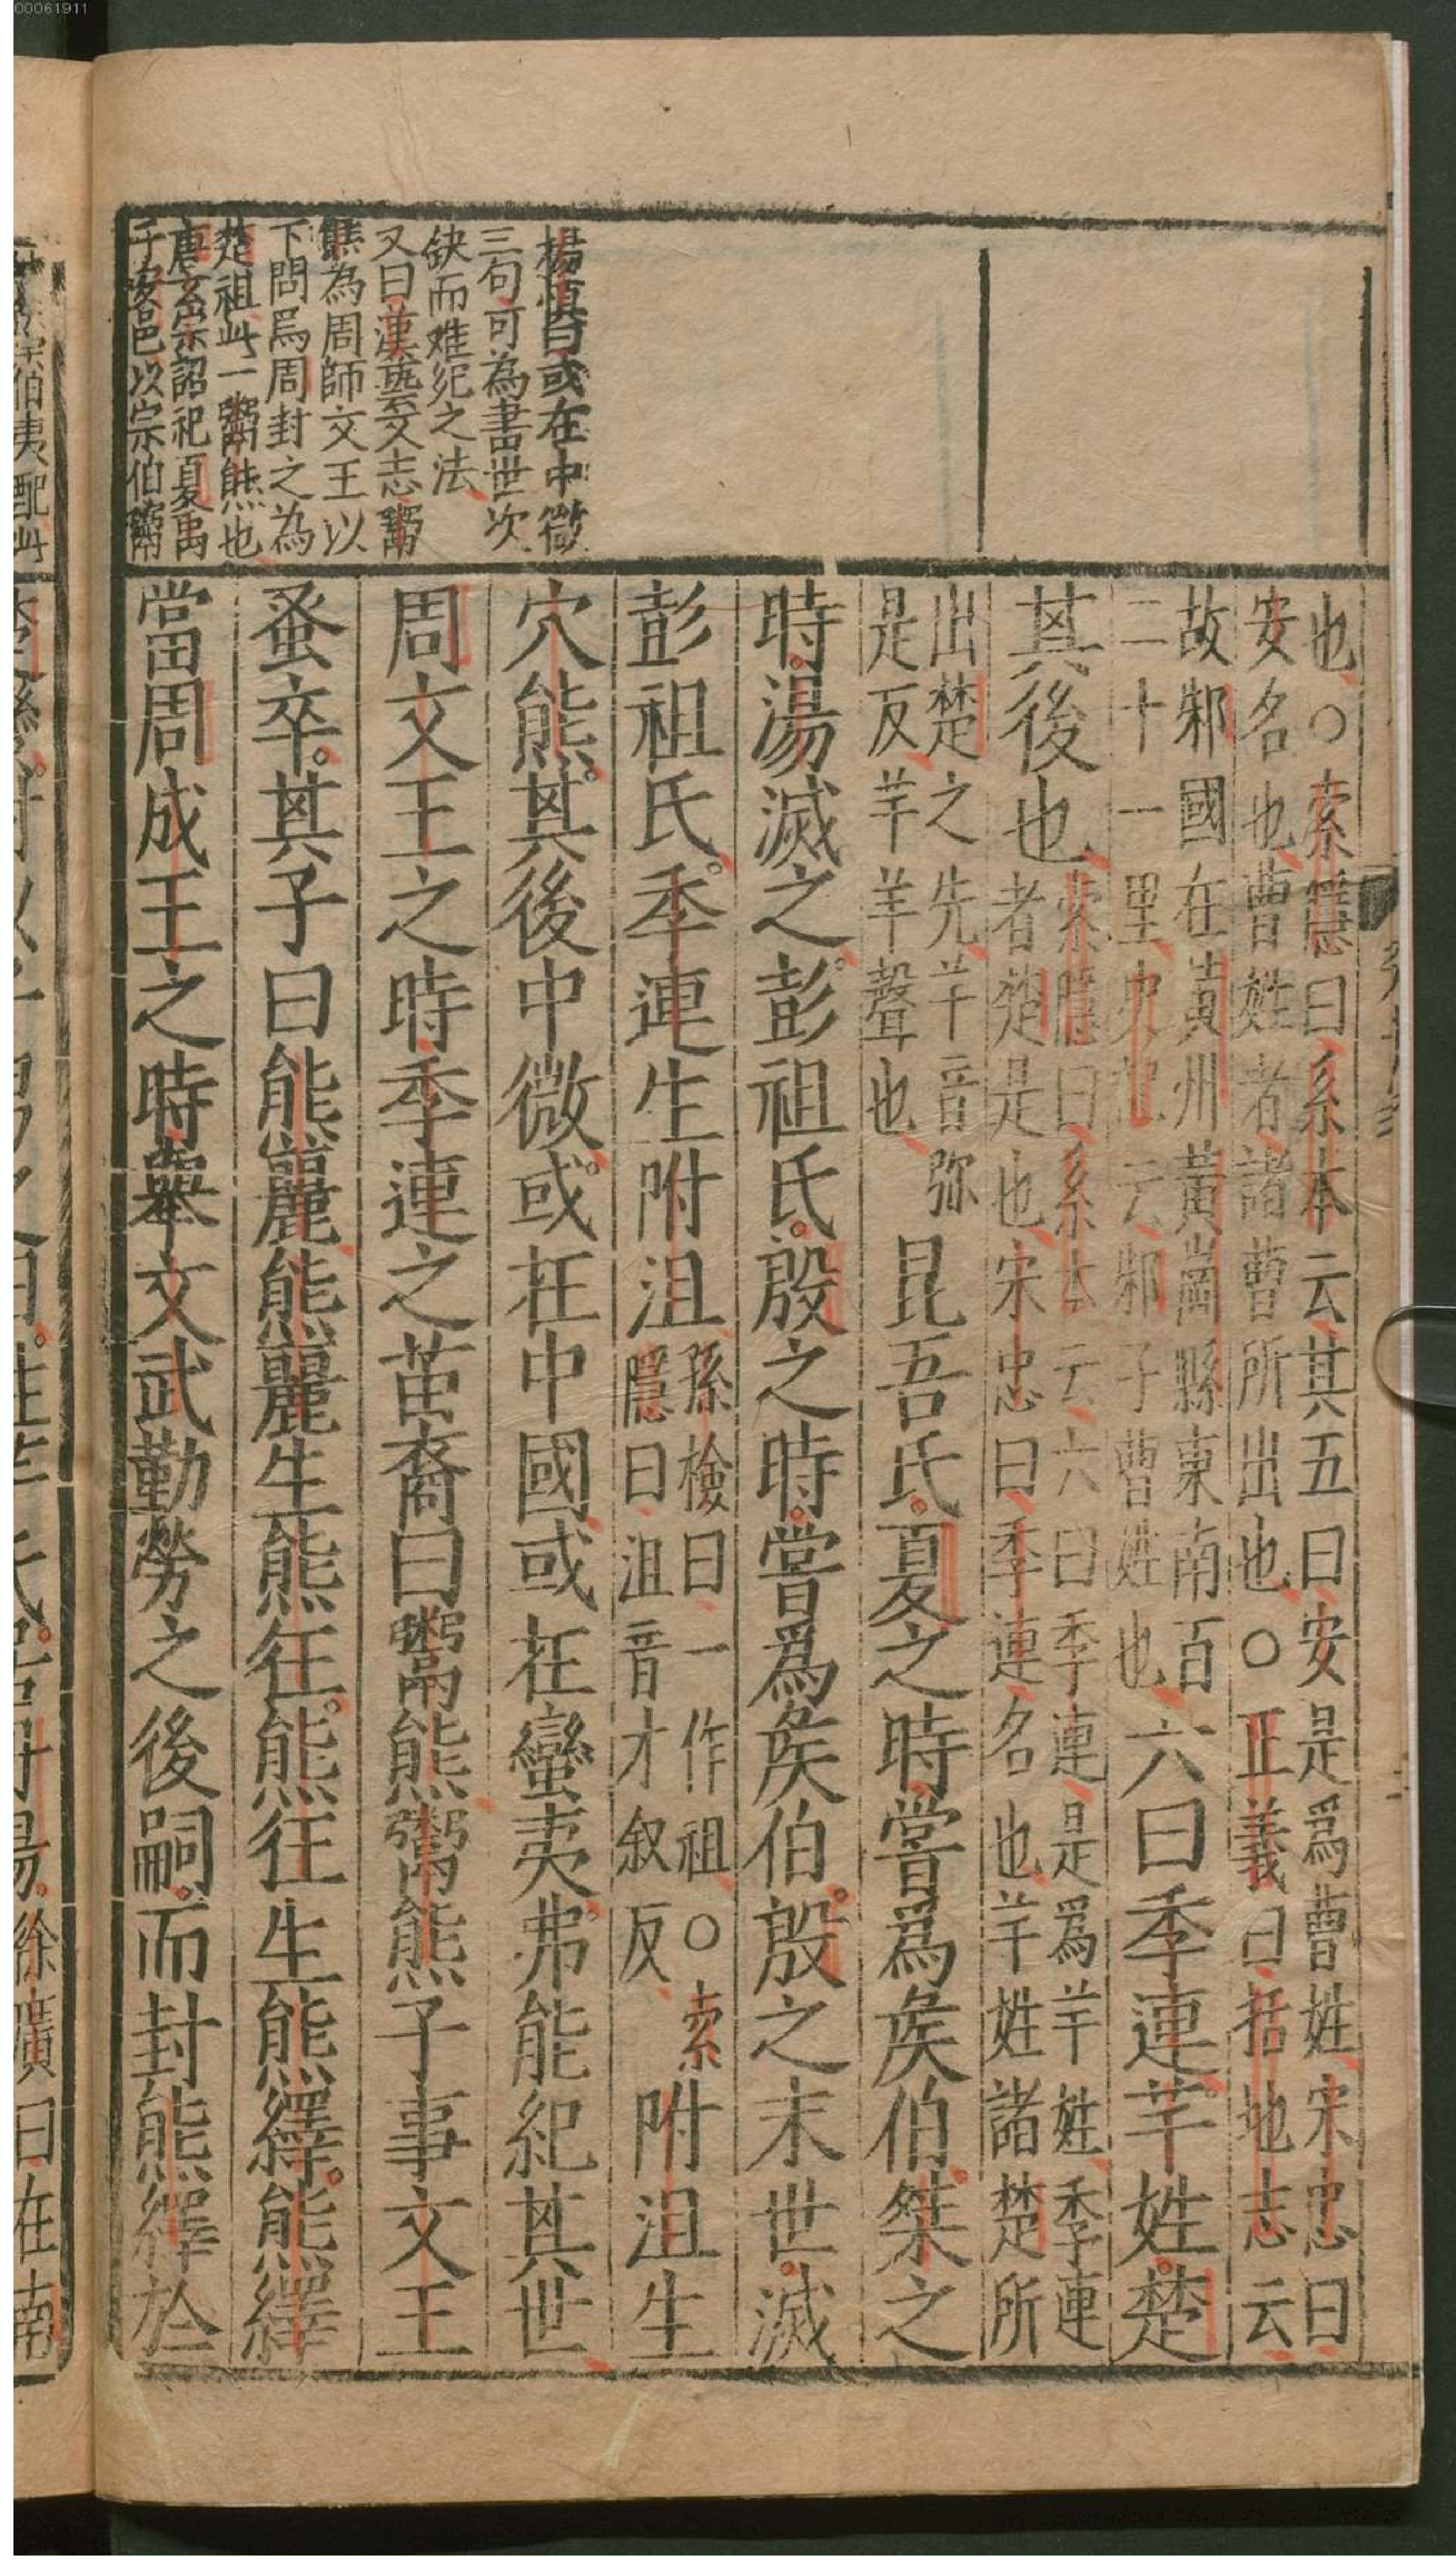 00061911
楊慎曰或在中微
三句可為書世次
缺而难紀之法
又曰漢藝文志鬻
熊為周師文王以
下問焉周封之為
楚祖此一鬻熊也
唐玄宗詔祀夏禹
于安邑以宗伯鬻
也○索隱曰系本云其五曰安是爲曹姓宋忠曰
安名也曹姓者諸曹所出也○正義曰括地志云
故邾國在黃州黃岡縣東南百
二十一里史記云邾子曹姓也
六曰季連芊姓楚
其後也
索隱曰系本云六曰季連是爲芊姓季連
者楚是也宋忠曰季連名也芊姓諸楚所
出楚之先芊音弥
是反芊羊聲也
昆吾氏夏之時嘗爲矦伯桀之
時湯滅之彭祖氏殷之時嘗爲矦伯殷之末世滅
彭祖氏季連生附沮
孫檢曰一作祖○索
隱曰沮音才叙反
附沮生
穴熊其後中微或在中國或在蠻夷弗能紀其世
周文王之時季連之苗裔曰鬻熊鬻熊子事文王
蚤卒其子曰熊麗熊麗生熊狂熊狂生熊繹熊繹
當周成王之時舉文武勤勞之後嗣而封熊繹於